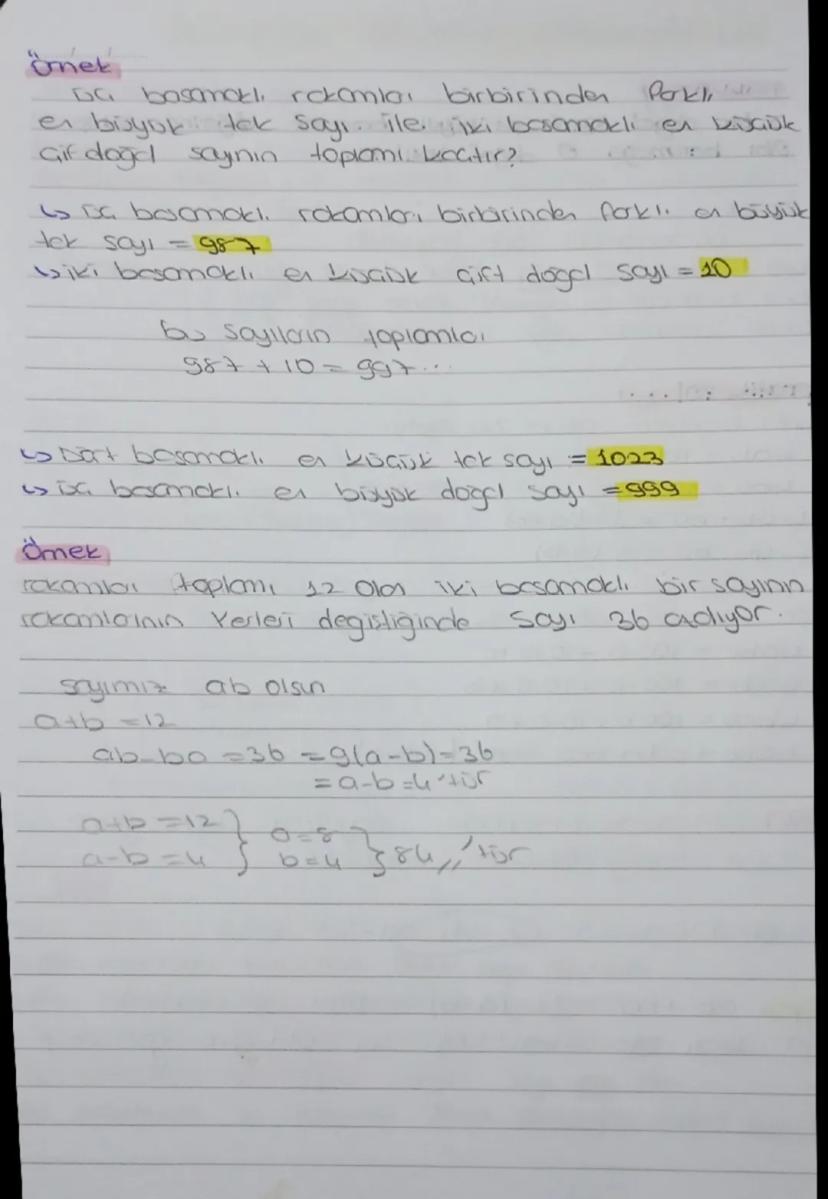 Örnek
üç basamaklı rakamları birbirinden farklı
en büyük tek sayı ile iki basamaklı en küçük
çift doğal sayının toplamı kaçtır?
↳ üç basamaklı rakamları birbirinden farklı en büyük
tek sayı = 987
↳ iki basamaklı en küçük çift doğal sayı = 10
bu sayıların toplamları
987 + 10 = 997...
↳ Dört basamaklı en küçük tek sayı = 1023
↳ üç basamaklı en büyük doğal sayı = 999
Örnek
rakamları toplamı 12 olan iki basamaklı bir sayının
rakamlarının yerleri değiştiğinde sayı 36 azalıyor.
sayımız ab olsun
a+b = 12
ab-ba = 36 = 9(a-b) = 36
= a-b = 4'tür
a+b = 12 } a=8 } 84,,'tür
a-b = 4 } b=4